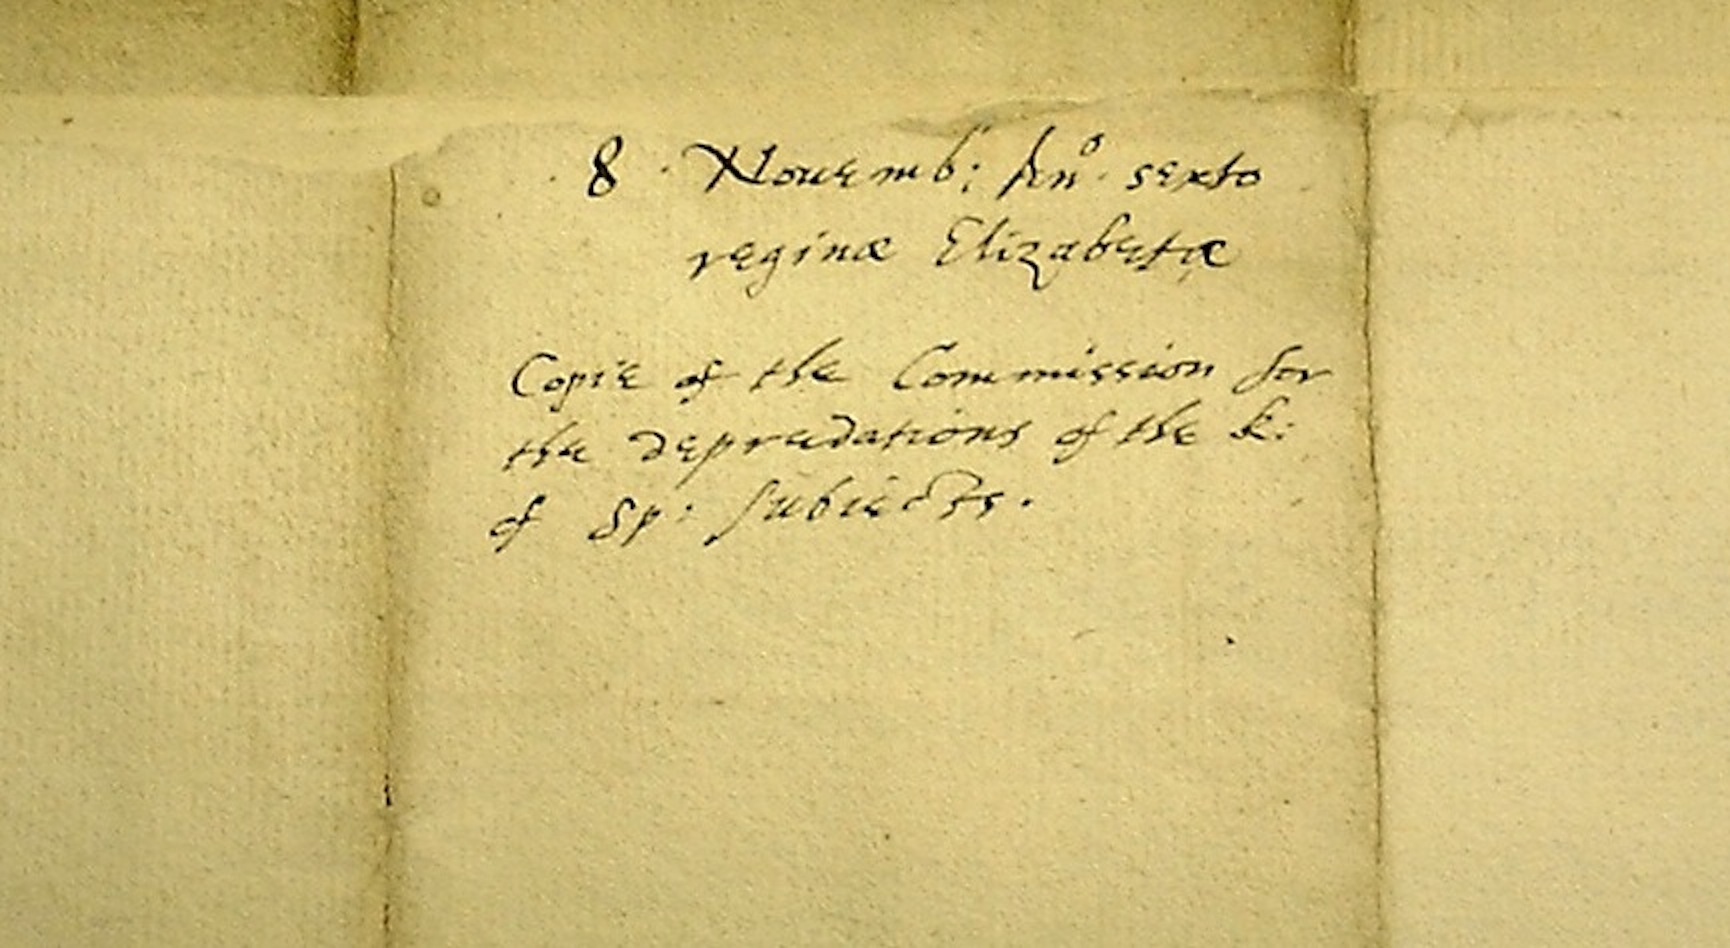 8 . Nouemb: Anᵒ. sexto
reginæ Elizabetæ
Copie of the Commission for
the depredations of the k:
of Sp: subiects.